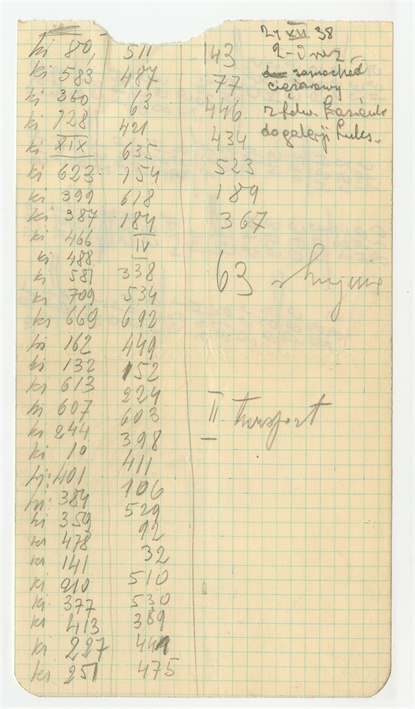 21 XII 38
2-i raz
samochód
ciężarowy
z
do galerji Luks.
ki 80, 511 143
ki 583 487 77
ki 360 63 446
ki 728 421 434
ki XIX 635 523
ki 623 154 189
ki 399 618 367
ki 387 184
ki 466 IV
ki 488
ki 581 338 63
ki 709 534
ki 669 692
ki 162 449
ki 132 152
ki 613 224
ki 607 603 II transport
ki 244 398
ki 10 411
ki 401 106
ki 384 529
ki 359 92
ki 478 32
ki 141 510
ki 210 530
ki 377 389
ki 413
ki 227 475
ki 251